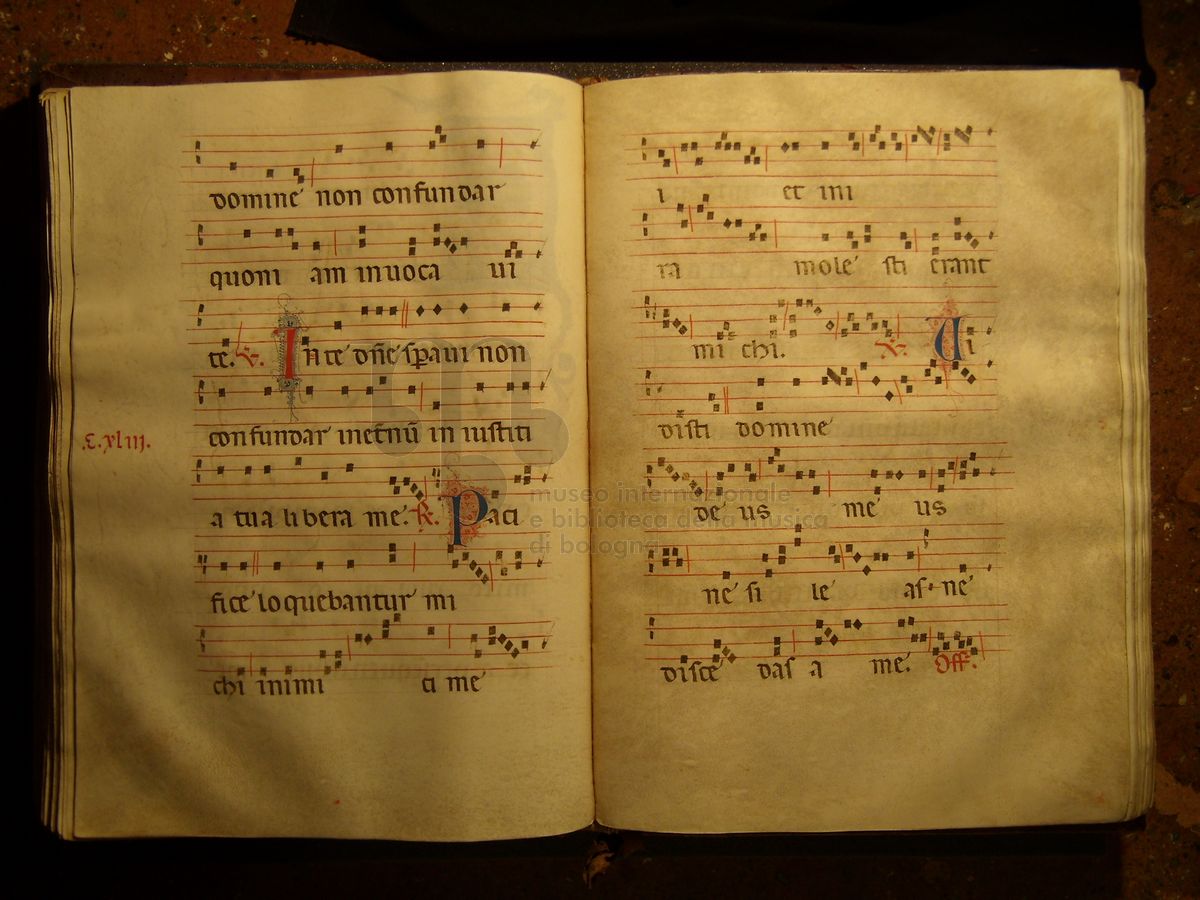 domine non confundar
quoni am inuoca ui
te. V. In te dñe speraui non
.C.xliii.
confundar inetnū in iustiti
a tua libera me. R. Paci
fice loquebantur mi
chi inimi ci me
i et in i
ra mole sti erant
mi chi. V. Vi
disti domine
de us me us
ne si le as ne
disce das a me. Off.
museo internazionale
e biblioteca della musica
di bologna